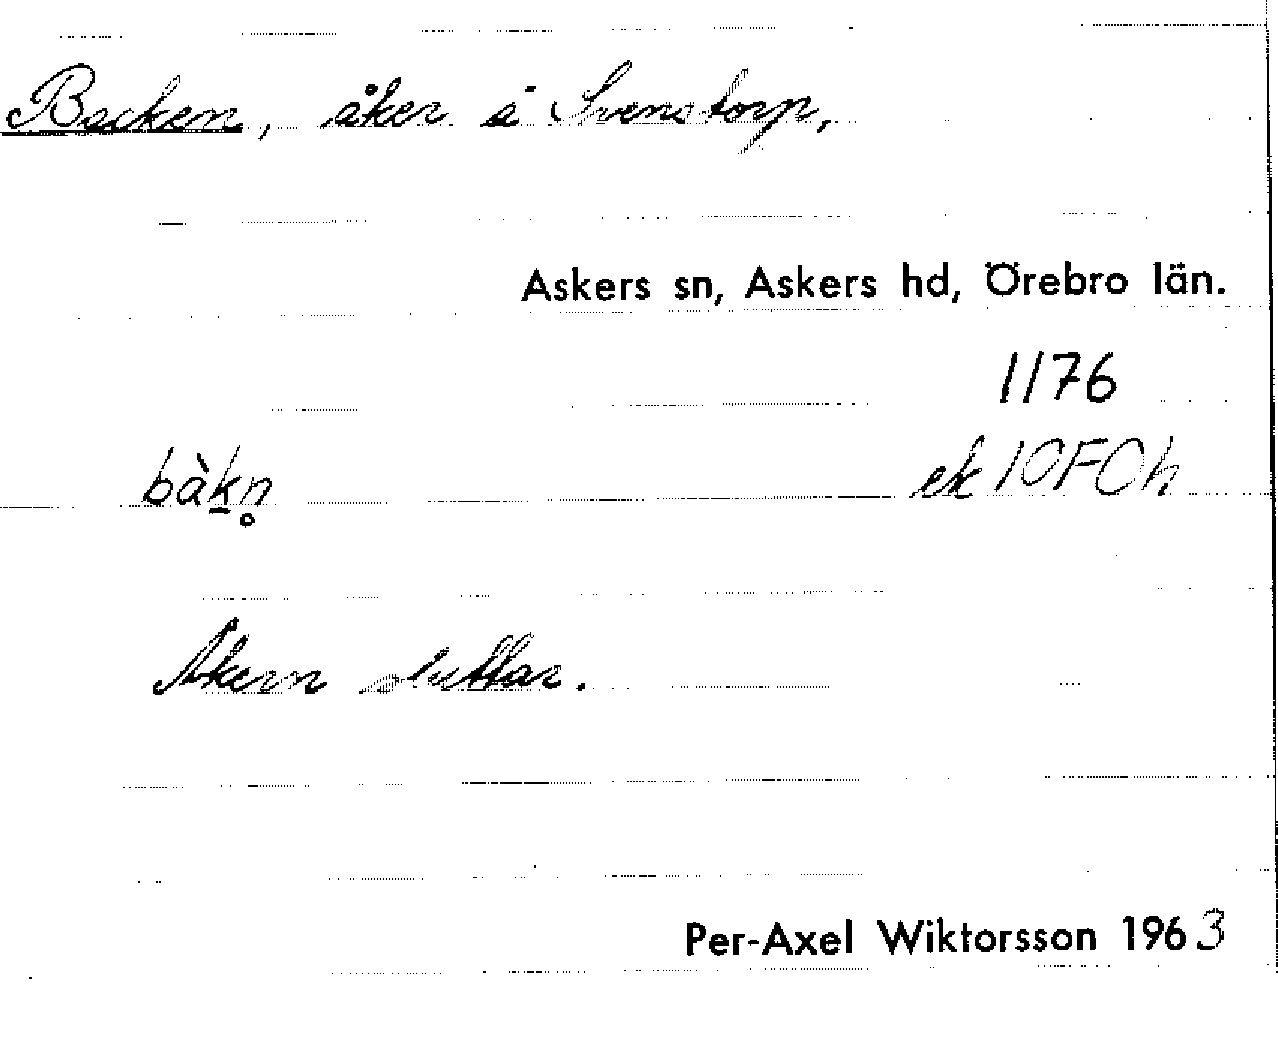 Backen, åker å Svenstorp,
Askers sn, Askers hd, Örebro län.
1176
bàk̠n̥
ek 10F0h
Åkern sluttar.
Per-Axel Wiktorsson 1963